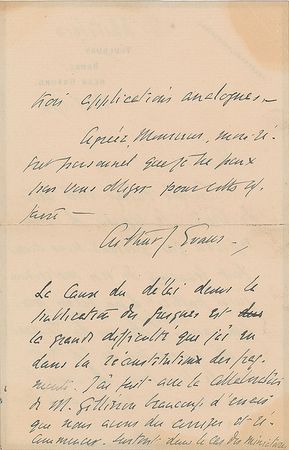 trois applications analogues —
Agréez, Monsieur, mon re-
gret personnel que je ne peux
pas vous obliger pour cette af-
faire —
Arthur J. Evans —
La cause du délai dans la
publication des fresques est dans
la grande difficulté que j'ai eu
dans la réconstitution des frag-
ments. J'ai fait avec la collaboration
de M. Gilliéron beaucoup d'essais
que nous avons du corriger et ré-
commencer. Surtout dans le cas des miniatures